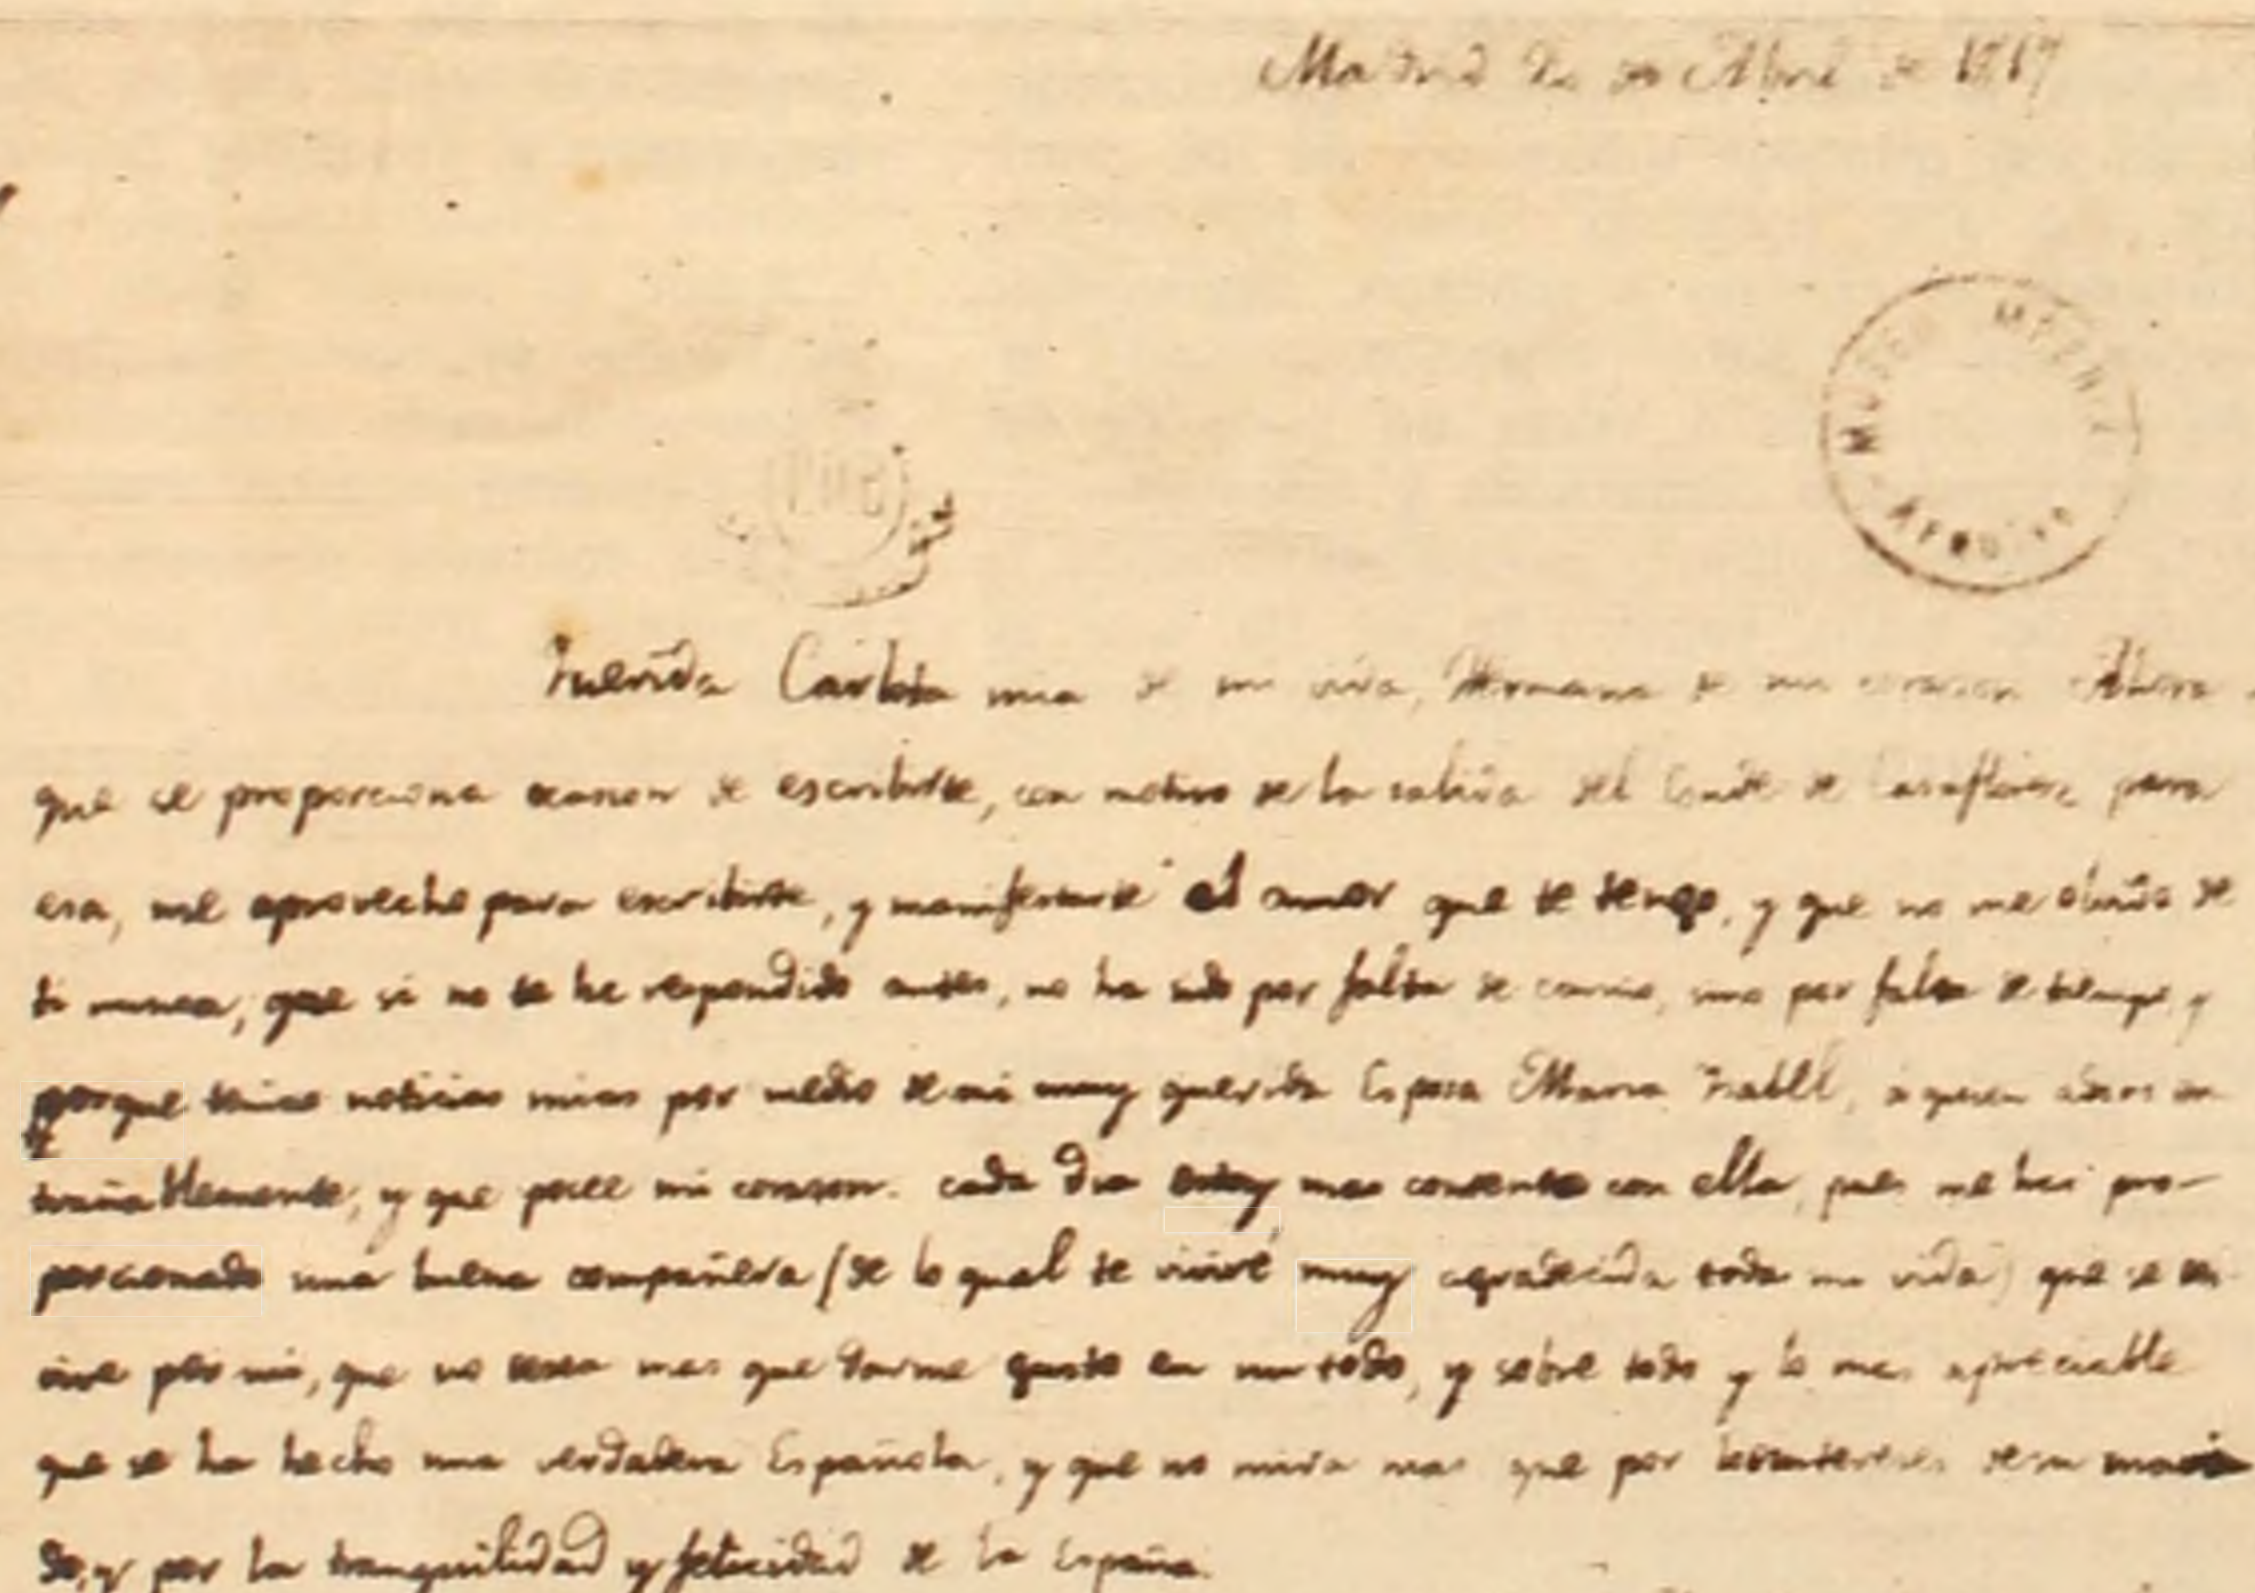 Madrid de Abril de 1817
MUSEU IMPERIAL
ARQUIVO
Querida Carlota mia de mi vida, Hermana de mi corazon Ahora
que se proporciona ocasion de escribirte, con motivo de la salida del Conde de Casaflores para
esa, me aprovecho para escribirte, y manifestarte el amor que te tengo, y que no me olvido de
ti nunca, que si no te he respondido antes, no ha sido por falta de cariño, sino por falta de tiempo, y
porque tenias noticias mias por medio de mi muy querida Esposa Maria Isabel, a quien adoro en-
trañablemente, y que posee mi corazon. cada dia estoy mas contento con ella, pues me has pro-
porcionado una buena compañera (de lo qual te viviré muy agradecido toda mi vida) que se es-
mera por mi, que no desea mas que darme gusto en un todo, y sobre todo y lo mas apreciable
que se ha hecho una verdadera Española, y que no mira mas que por los intereses de su mari
do, y por la tranquilidad y felicidad de la España.